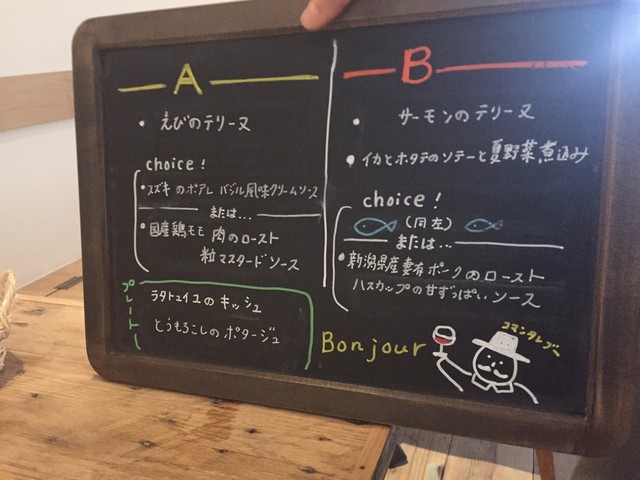 A
・えびのテリーヌ
choice!
・スズキのポアレ バジル風味クリームソース
または…
・国産鶏モモ肉のロースト
粒マスタードソース
プレート
ラタトゥイユのキッシュ
とうもろこしのポタージュ
B
・サーモンのテリーヌ
・イカとホタテのソテーと夏野菜煮込み
choice!
(同左)
または…
・新潟県産妻有ポークのロースト
ハスカップの甘ずっぱいソース
Bonjour
コマンタレブー